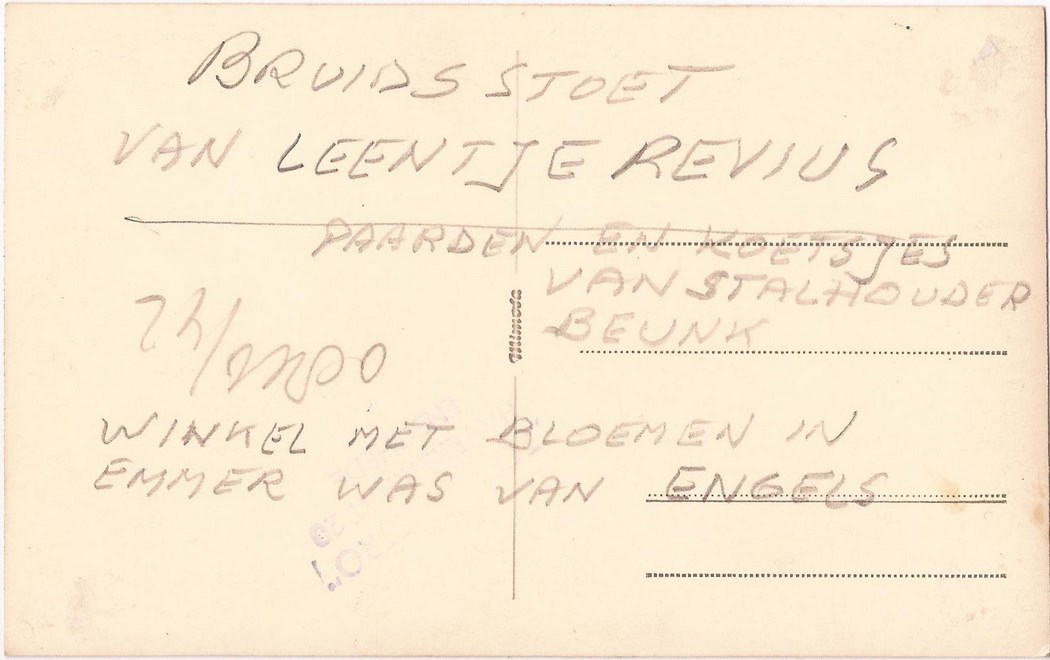 BRUIDSSTOET
VAN LEENTJE REVIUS
PAARDEN EN KOETSJES
VAN STALHOUDER
BEUNK
Mimosa
WINKEL MET BLOEMEN IN
EMMER WAS VAN ENGELS